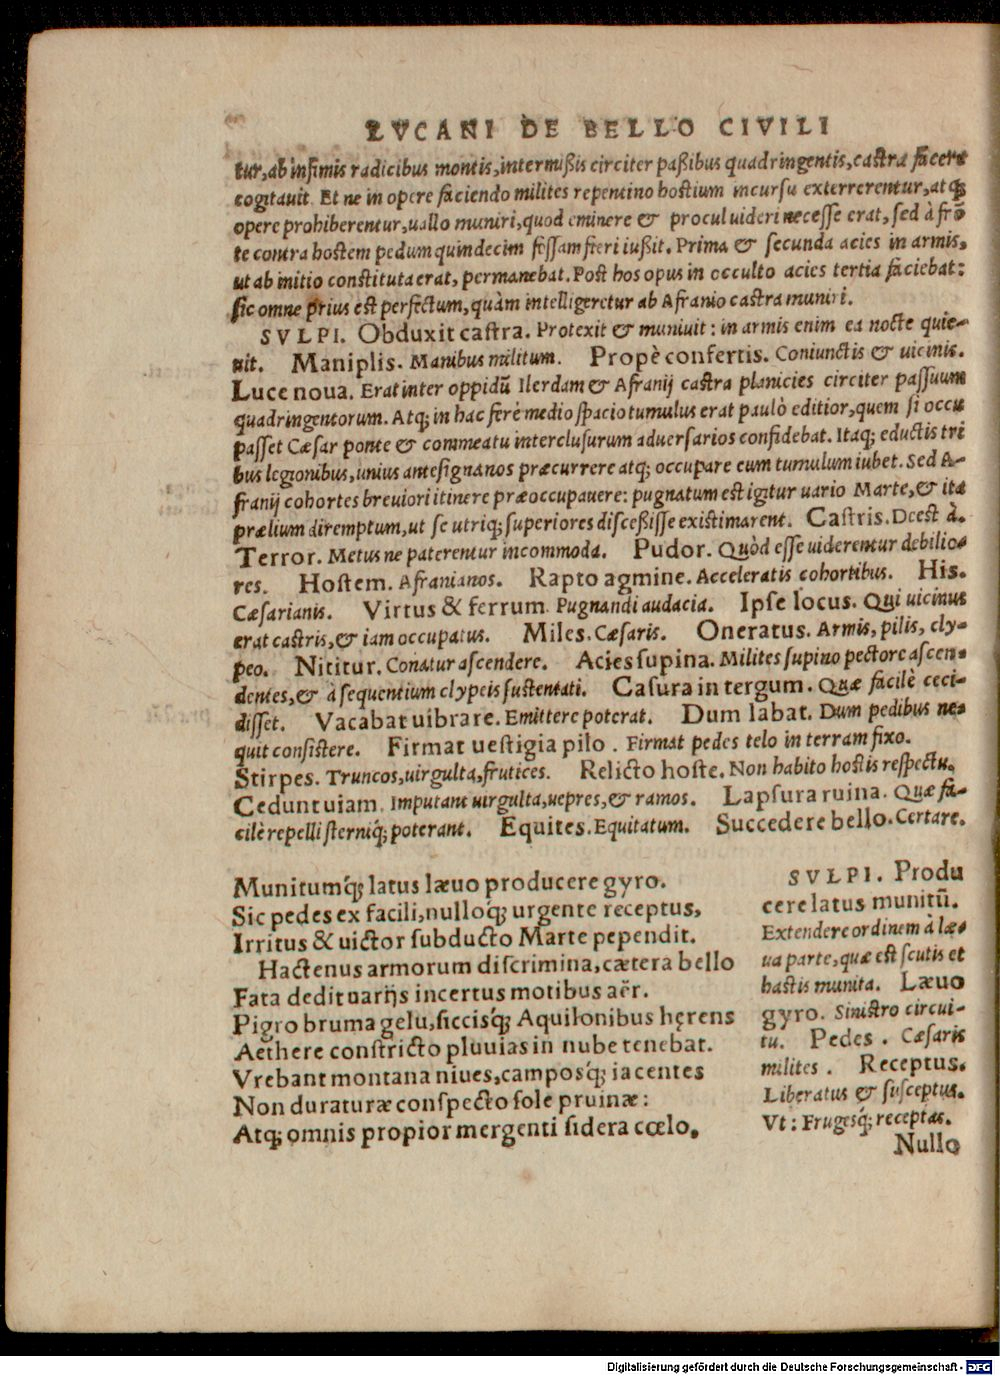 LVCANI DE BELLO CIVILI
tur, ab infimis radicibus montis, intermißis circiter paßibus quadringentis, castra facere
cogitauit. Et ne in opere faciendo milites repentino hostium incursu exterrerentur, atq;
opere prohiberentur, uallo muniri, quod eminere & procul uideri necesse erat, sed à frō
te contra hostem pedum quindecim fossam fieri iußit. Prima & secunda acies in armis,
ut ab initio constituta erat, permanebat. Post hos opus in occulto acies tertia faciebat:
sic omne prius est perfectum, quàm intelligeretur ab Afranio castra muniri.
SVLPI. Obduxit castra. Protexit & muniuit: in armis enim ea nocte quie-
uit. Maniplis. Manibus militum. Propè confertis. Coniunctis & uicinis.
Luce noua. Erat inter oppidū Ilerdam & Afranij castra planicies circiter passuum
quadringentorum. Atq; in hac ferè medio spacio tumulus erat paulò editior, quem si occu
passet Cæsar ponte & commeatu interclusurum aduersarios confidebat. Itaq; eductis tri
bus legionibus, unius antesignanos præcurrere atq; occupare eum tumulum iubet. Sed A-
franij cohortes breuiori itinere præoccupauere: pugnatum est igitur uario Marte, & ita
prælium diremptum, ut se utriq; superiores disceßisse existimarent. Castris. Deest à.
Terror. Metus ne paterentur incommoda. Pudor. Quòd esse uiderentur debilio-
res. Hostem. Afranianos. Rapto agmine. Acceleratis cohortibus. His.
Cæsarianis. Virtus & ferrum. Pugnandi audacia. Ipse locus. Qui uicinus
erat castris, & iam occupatus. Miles. Cæsaris. Oneratus. Armis, pilis, cly-
peo. Nititur. Conatur ascendere. Acies supina. Milites supino pectore ascen-
dentes, & à sequentium clypeis sustentati. Casura in tergum. Quæ facilè ceci-
disset. Vacabat uibrare. Emittere poterat. Dum labat. Dum pedibus ne-
quit consistere. Firmat uestigia pilo. Firmat pedes telo in terram fixo.
Stirpes. Truncos, uirgulta, frutices. Relicto hoste. Non habito hostis respectu.
Cedunt uiam. Imputant uirgulta, uepres, & ramos. Lapsura ruina. Quæ fa-
cilè repelli sterniq; poterant. Equites. Equitatum. Succedere bello. Certare.
Munitumq́; latus læuo producere gyro.
Sic pedes ex facili, nulloq́; urgente receptus,
Irritus & uictor subducto Marte pependit.
Hactenus armorum discrimina, cætera bello
Fata dedit uarijs incertus motibus aër.
Pigro bruma gelu, siccisq́; Aquilonibus hęrens
Aethere constricto pluuias in nube tenebat.
Vrebant montana niues, camposq́; iacentes
Non duraturæ conspecto sole pruinæ:
Atq; omnis propior mergenti sidera cœlo,
SVLPI. Produ
cere latus munitū.
Extendere ordinem à læ-
ua parte, quæ est scutis et
hastis munita. Læuo
gyro. Sinistro circui-
tu. Pedes. Cæsaris
milites. Receptus.
Liberatus & susceptus.
Vt: Frugesq́; receptas.
Nullo
Digitalisierung gefördert durch die Deutsche Forschungsgemeinschaft - DFG